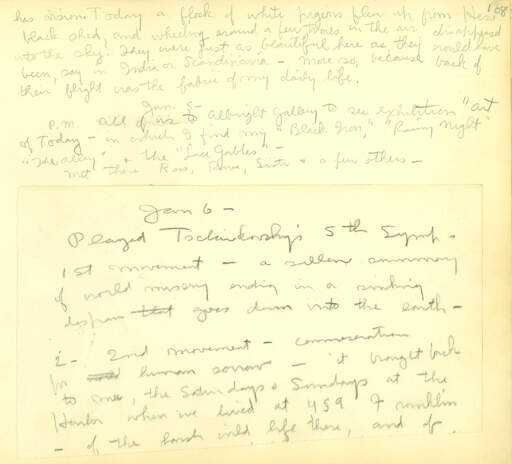 his vision. Today a flock of white pigeons flew up from Hess' 108
black shed, and wheeling around a few times in the air disappeared
into the sky. They were just as beautiful here as they would have
been, say in India or Scandinavia – more so, because back of
their flight was the fabric of my daily life.
Jan. 5 –
P.M. All of us to Albright Gallery to see exhibition "Art
of Today – in which I find my "Black Iron," "Rainy Night"
"The Alley" & the "Lace Gables" –
Met there Ross, & a few others –
Jan 6 –
Played Tschaikowsky's 5th Symp.
1st movement – a sullen summary
of world misery ending in a sinking
despair that goes down into the earth –
2nd movement – commiseration
for human sorrow – it brought back
to me, the Saturdays & Sundays at the
Harbor when we lived at 459 Franklin
– of the harsh world, life there, and of